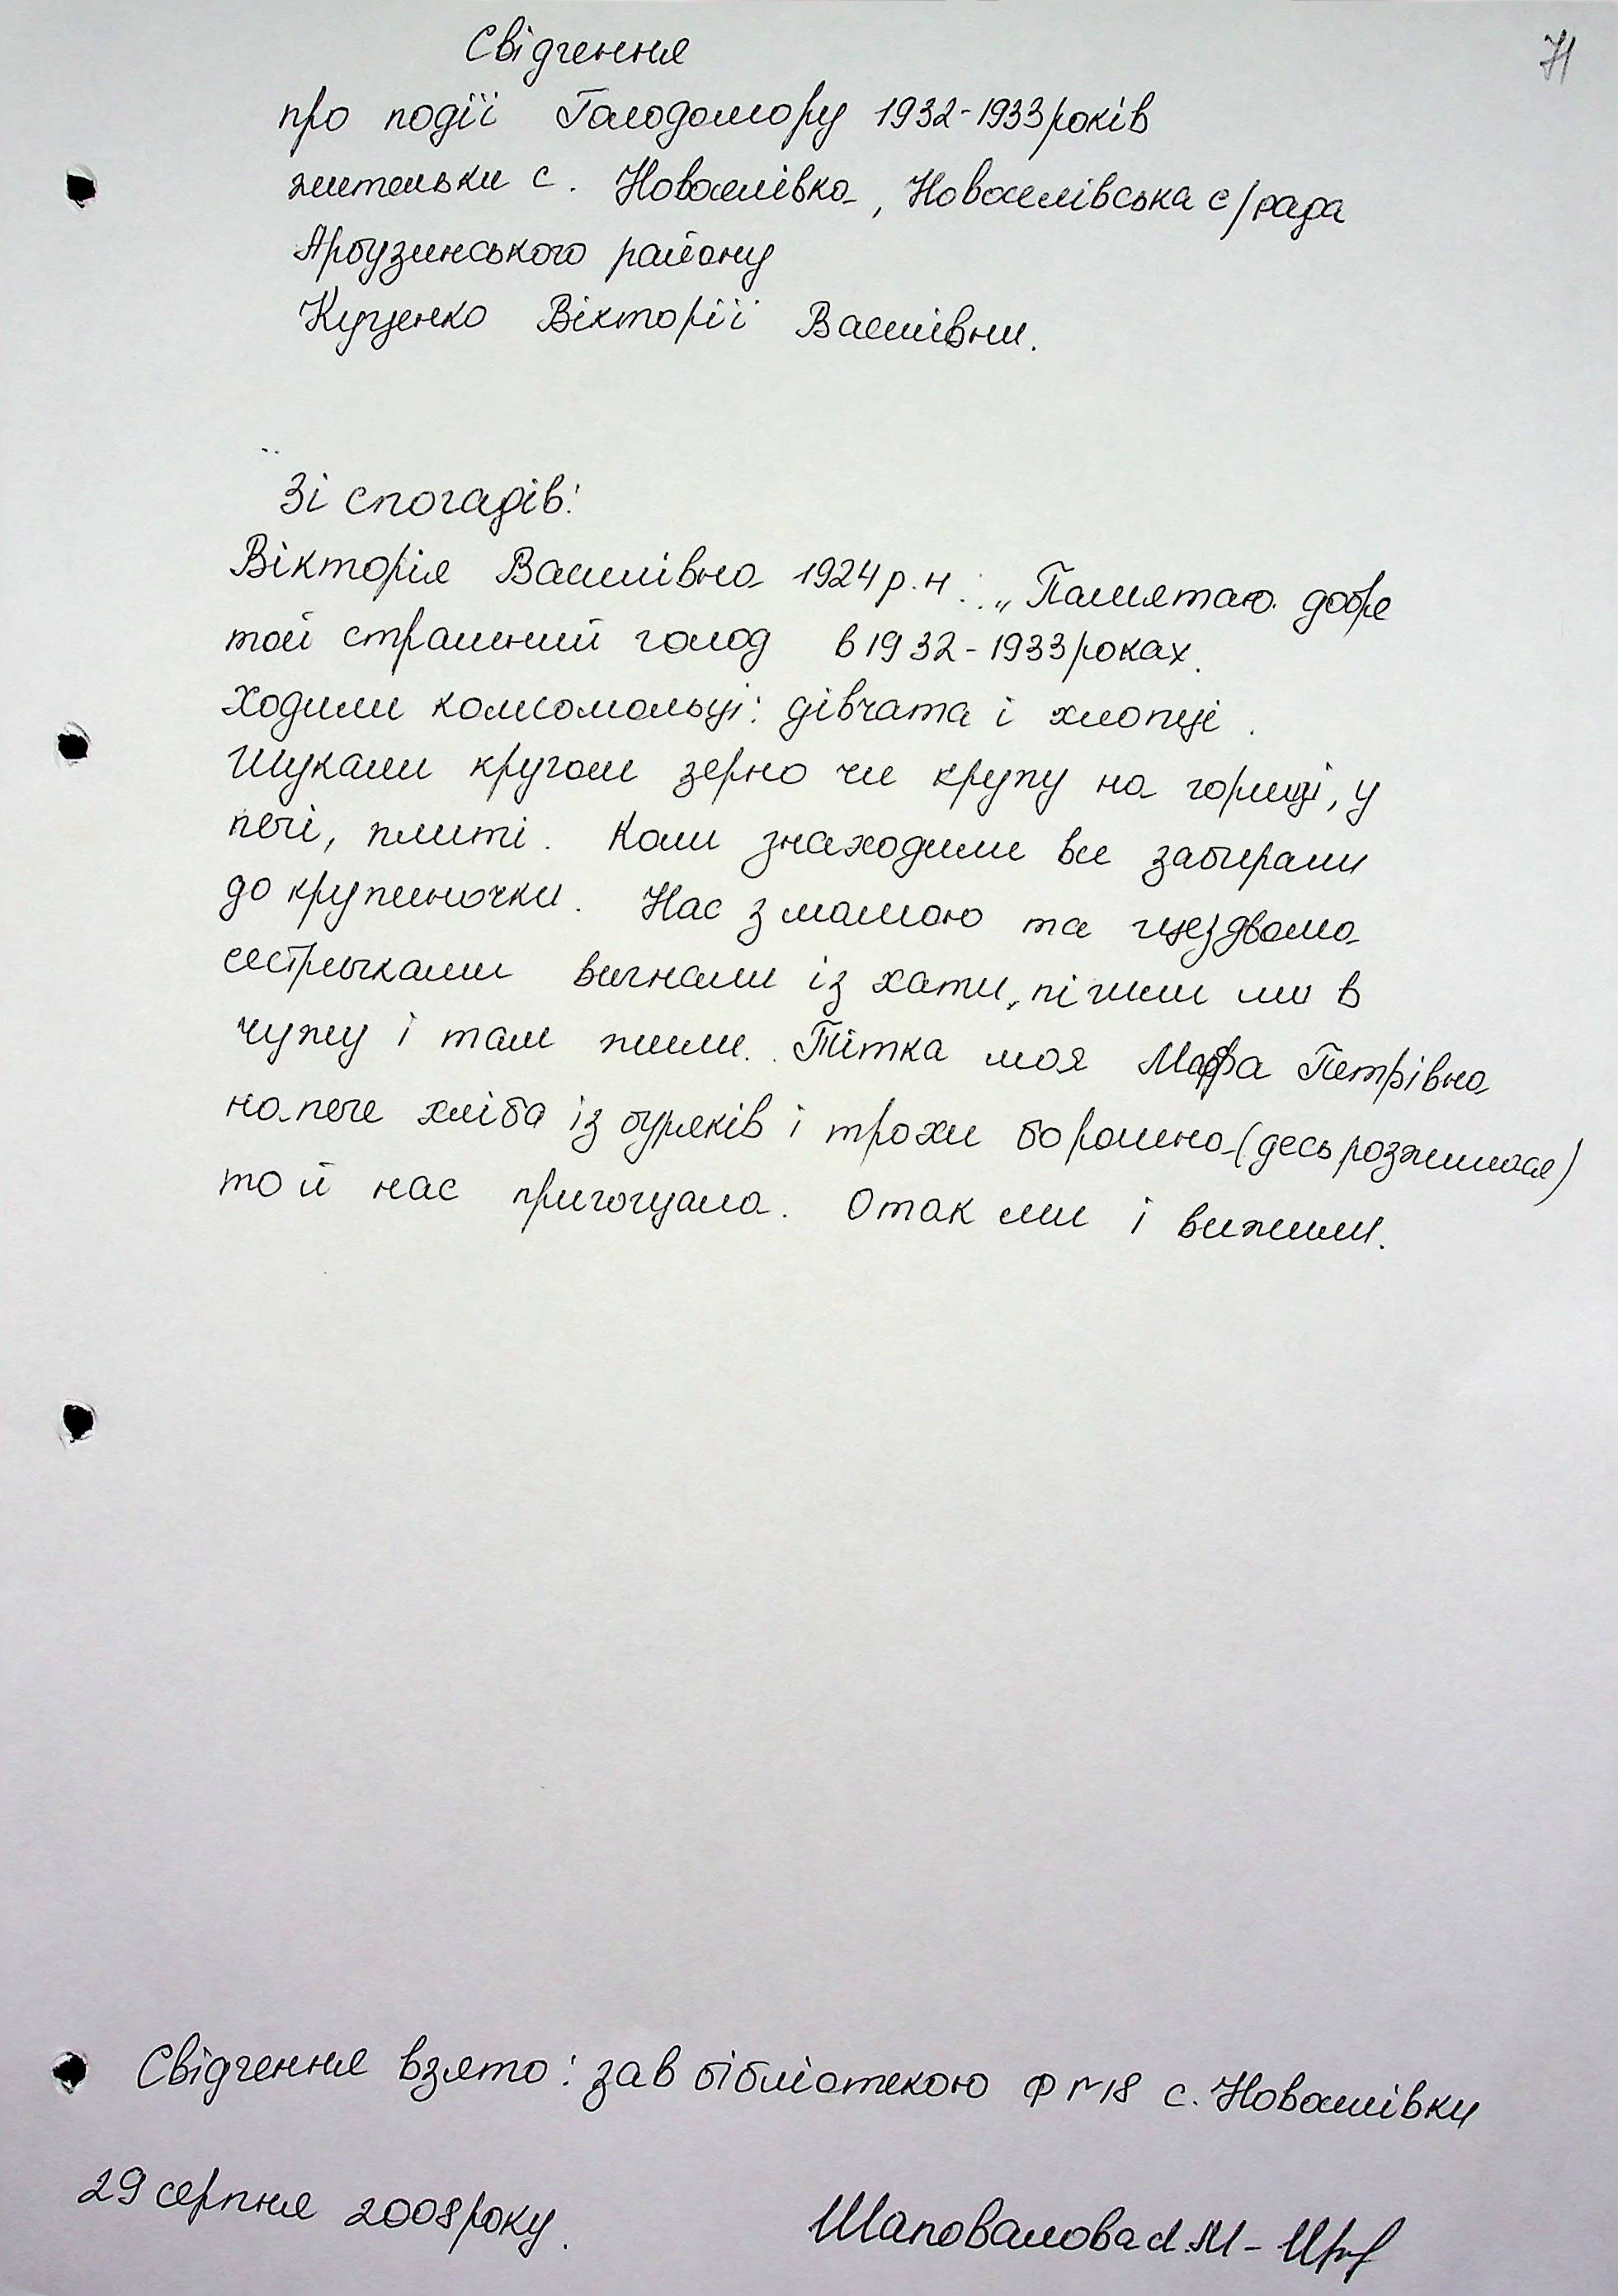 71
Свідчення
про події Голодомору 1932-1933 років
жительки с. Новоселівка, Новоселівська с/рада
Арбузинського району
Куценко Вікторії Василівни.
Зі спогадів:
Вікторія Василівна 1924 р.н.: „Памятаю добре
той страшний голод в 1932-1933 роках.
Ходили комсомольці: дівчата і хлопці.
Шукали кругом зерно чи крупу на горищі, у
печі, плиті. Коли знаходили все забирали
до крупиночки. Нас з мамою та ще з двома
сестричками вигнали із хати, пішли ми в
чужу і там жили. Тітка моя Марфа Петрівна
напече хліба із буряків і трохи борошна (десь розжилася)
то й нас пригощала. Отак ми і вижили.
Свідчення взято: зав бібліотекою ф №18 с. Новоселівки
29 серпня 2008 року.
Шаповалова Л.М -